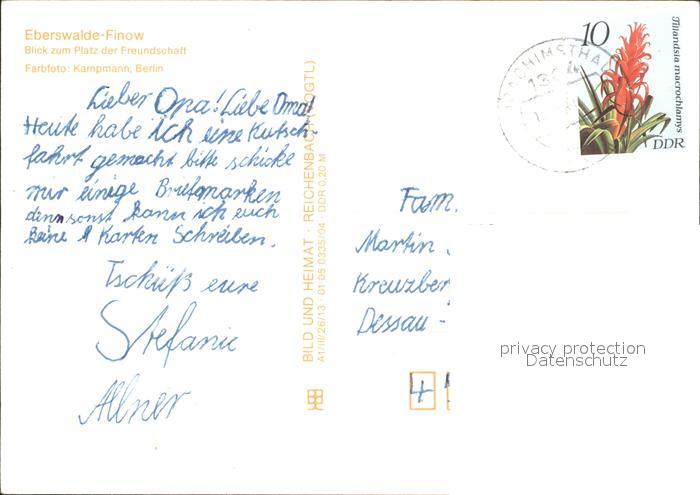 Eberswalde-Finow
Blick zum Platz der Freundschaft
Farbfoto: Kampmann, Berlin
Lieber Opa! Liebe Oma!
Heute habe ich eine Kutsch-
fahrt gemacht bitte schicke
mir einige Briefmarken
denn sonst kann ich euch
keine Karten Schreiben.
Tschüß eure
Stefanie
Allner
BILD UND HEIMAT · REICHENBACH (VOGTL)
A1/III/26/13 · 01 05 0335/04 · DDR 0,20 M
10
Tillandsia macrochlamys
DDR
JOACHIMSTHAL
Fam.
Martin
Kreuzber
Dessau -
4
privacy protection
Datenschutz